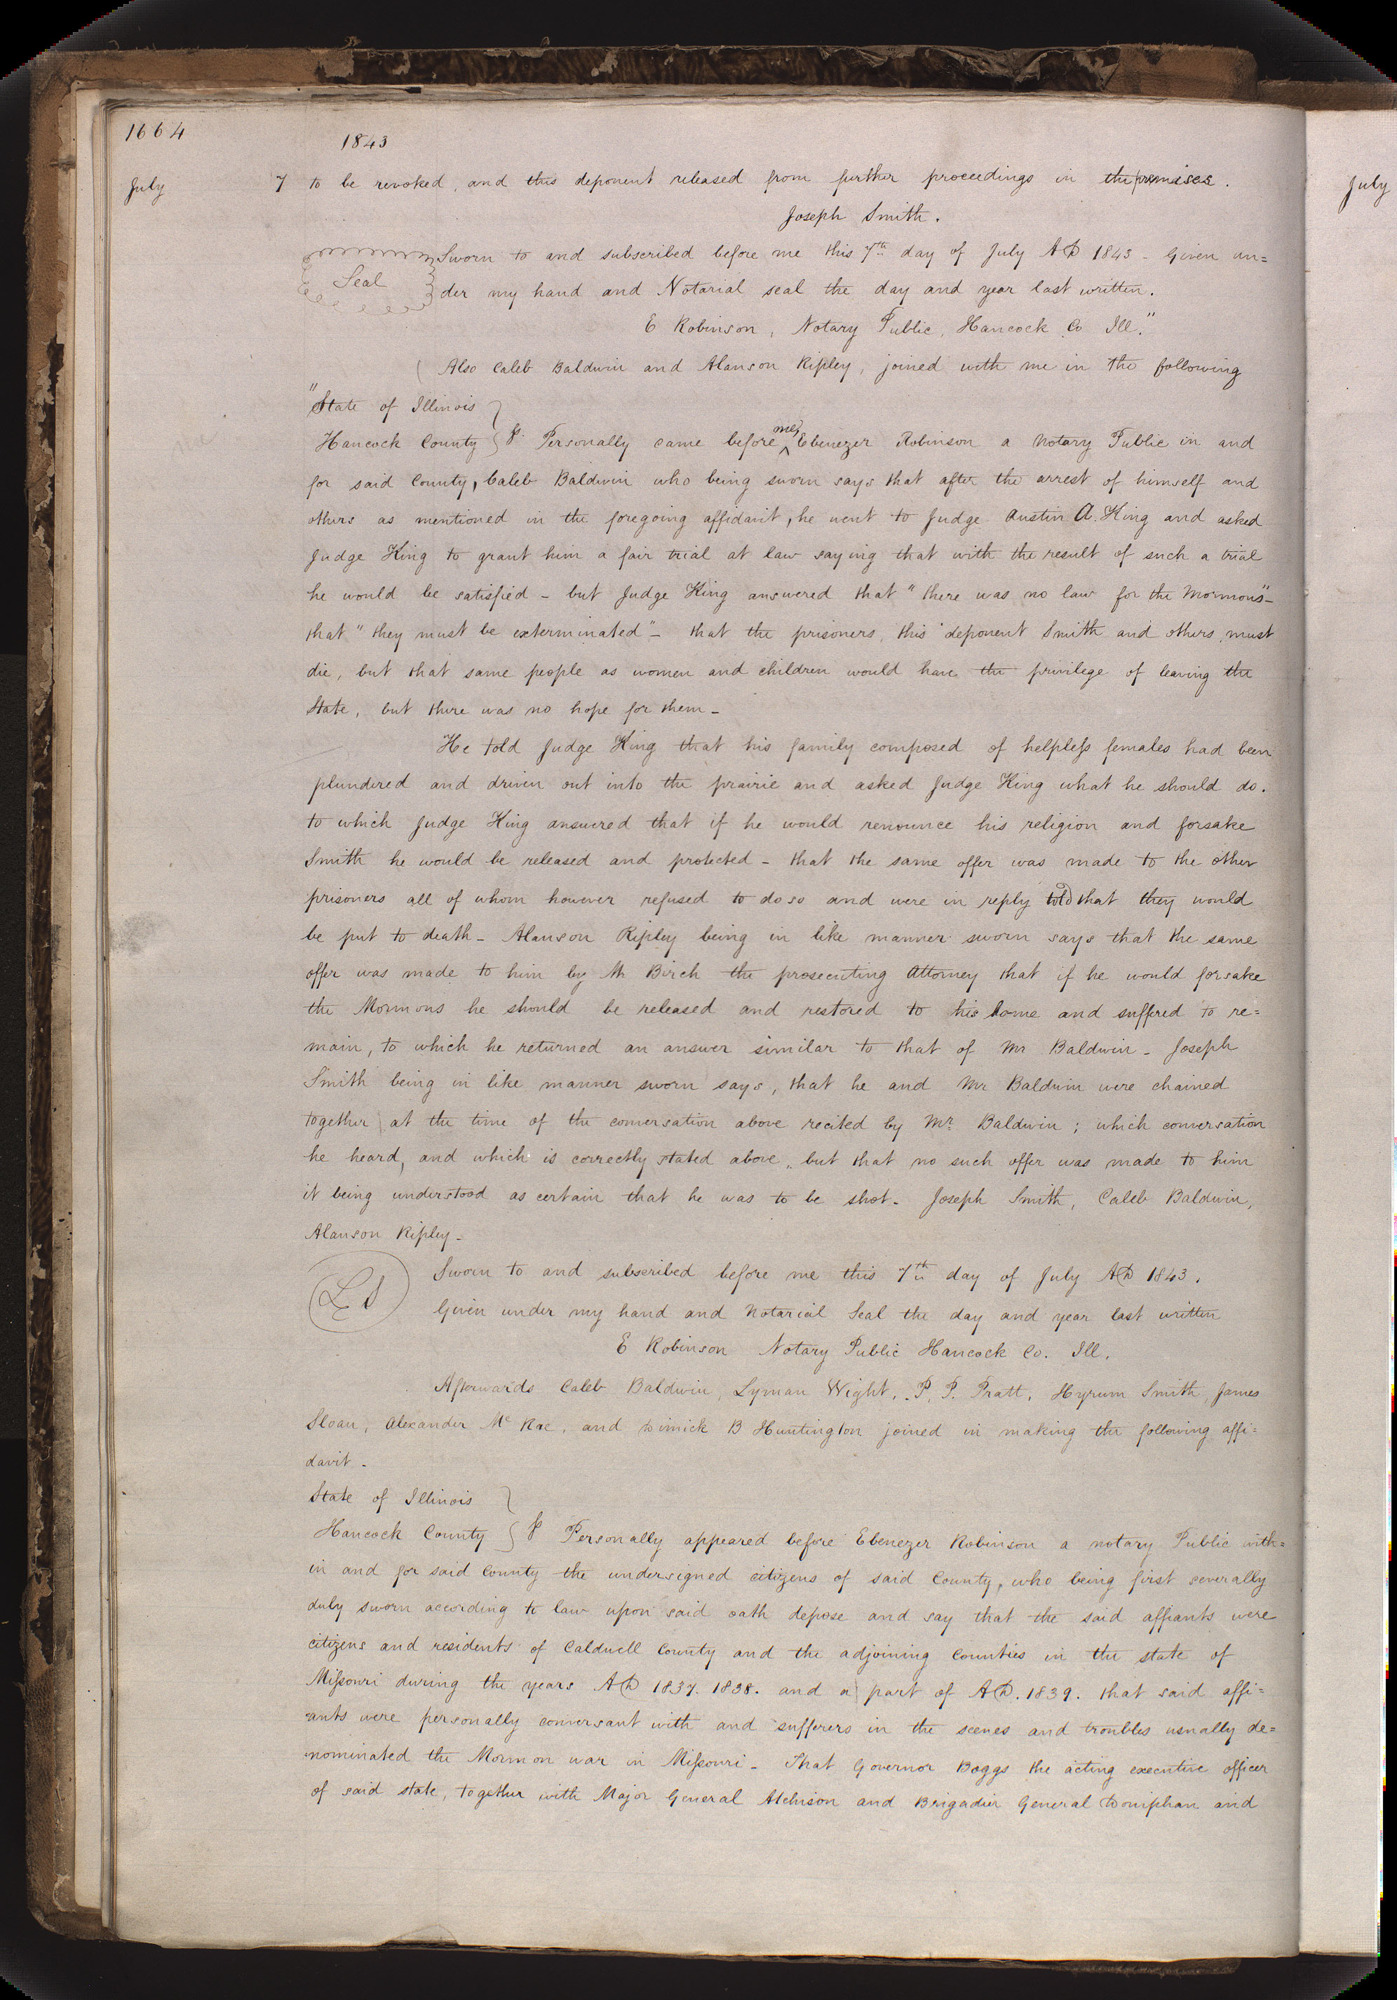 1664
1843
July 7 to be revoked, and this deponent released from further proceedings in the premises.
July
Joseph Smith.
Seal
Sworn to and subscribed before me this 7th day of July AD 1843 - Given un=
der my hand and Notarial seal the day and year last written.
E Robinson, Notary Public, Hancock Co Ill."
Also Caleb Baldwin and Alanson Ripley, joined with me in the following
"State of Illinois }
Hancock County } Personally came before me, Ebenezer Robinson a Notary Public in and
for said County, Caleb Baldwin who being sworn says that after the arrest of himself and
others as mentioned in the foregoing affidavit, he went to Judge Austin A. King and asked
Judge King to grant him a fair trial at law saying that with the result of such a trial
he would be satisfied - but Judge King answered that "there was no law for the Mormons" -
that "they must be exterminated" - that the prisoners, this deponent Smith and others, must
die, but that same people as women and children would have the privilege of leaving the
State, but there was no hope for them -
He told Judge King that his family composed of helpless females had been
plundered and driven out into the prairie and asked Judge King what he should do.
to which Judge King answered that if he would renounce his religion and forsake
Smith he would be released and protected - that the same offer was made to the other
prisoners all of whom however refused to do so and were in reply told that they would
be put to death - Alanson Ripley being in like manner sworn says that the same
offer was made to him by Mr Birch the prosecuting Attorney that if he would forsake
the Mormons he should be released and restored to his home and suffered to re=
main, to which he returned an answer similar to that of Mr Baldwin - Joseph
Smith being in like manner sworn says, that he and Mr Baldwin were chained
together at the time of the conversation above recited by Mr. Baldwin; which conversation
he heard, and which is correctly stated above, but that no such offer was made to him
it being understood as certain that he was to be shot - Joseph Smith, Caleb Baldwin,
Alanson Ripley -
L S
Sworn to and subscribed before me this 7th day of July AD 1843.
Given under my hand and Notarial Seal the day and year last written
E Robinson Notary Public Hancock Co. Ill.
Afterwards Caleb Baldwin, Lyman Wight, P. P. Pratt, Hyrum Smith, James
Sloan, Alexander Mc Rae, and Dimick B Huntington joined in making the following affi=
davit -
State of Illinois }
Hancock County } Personally appeared before Ebenezer Robinson a notary Public with=
in and for said County the undersigned citizens of said County, who being first severally
duly sworn according to law upon said oath depose and say that the said affiants were
citizens and residents of Caldwell County and the adjoining Counties in the state of
Missouri during the years AD 1837. 1838. and a part of AD. 1839. that said affi=
ants were personally conversant with and sufferers in the scenes and troubles usually de=
nominated the Mormon war in Missouri - That Governor Boggs the acting executive officer
of said state, together with Major General Atchison and Brigadier General Doniphan and